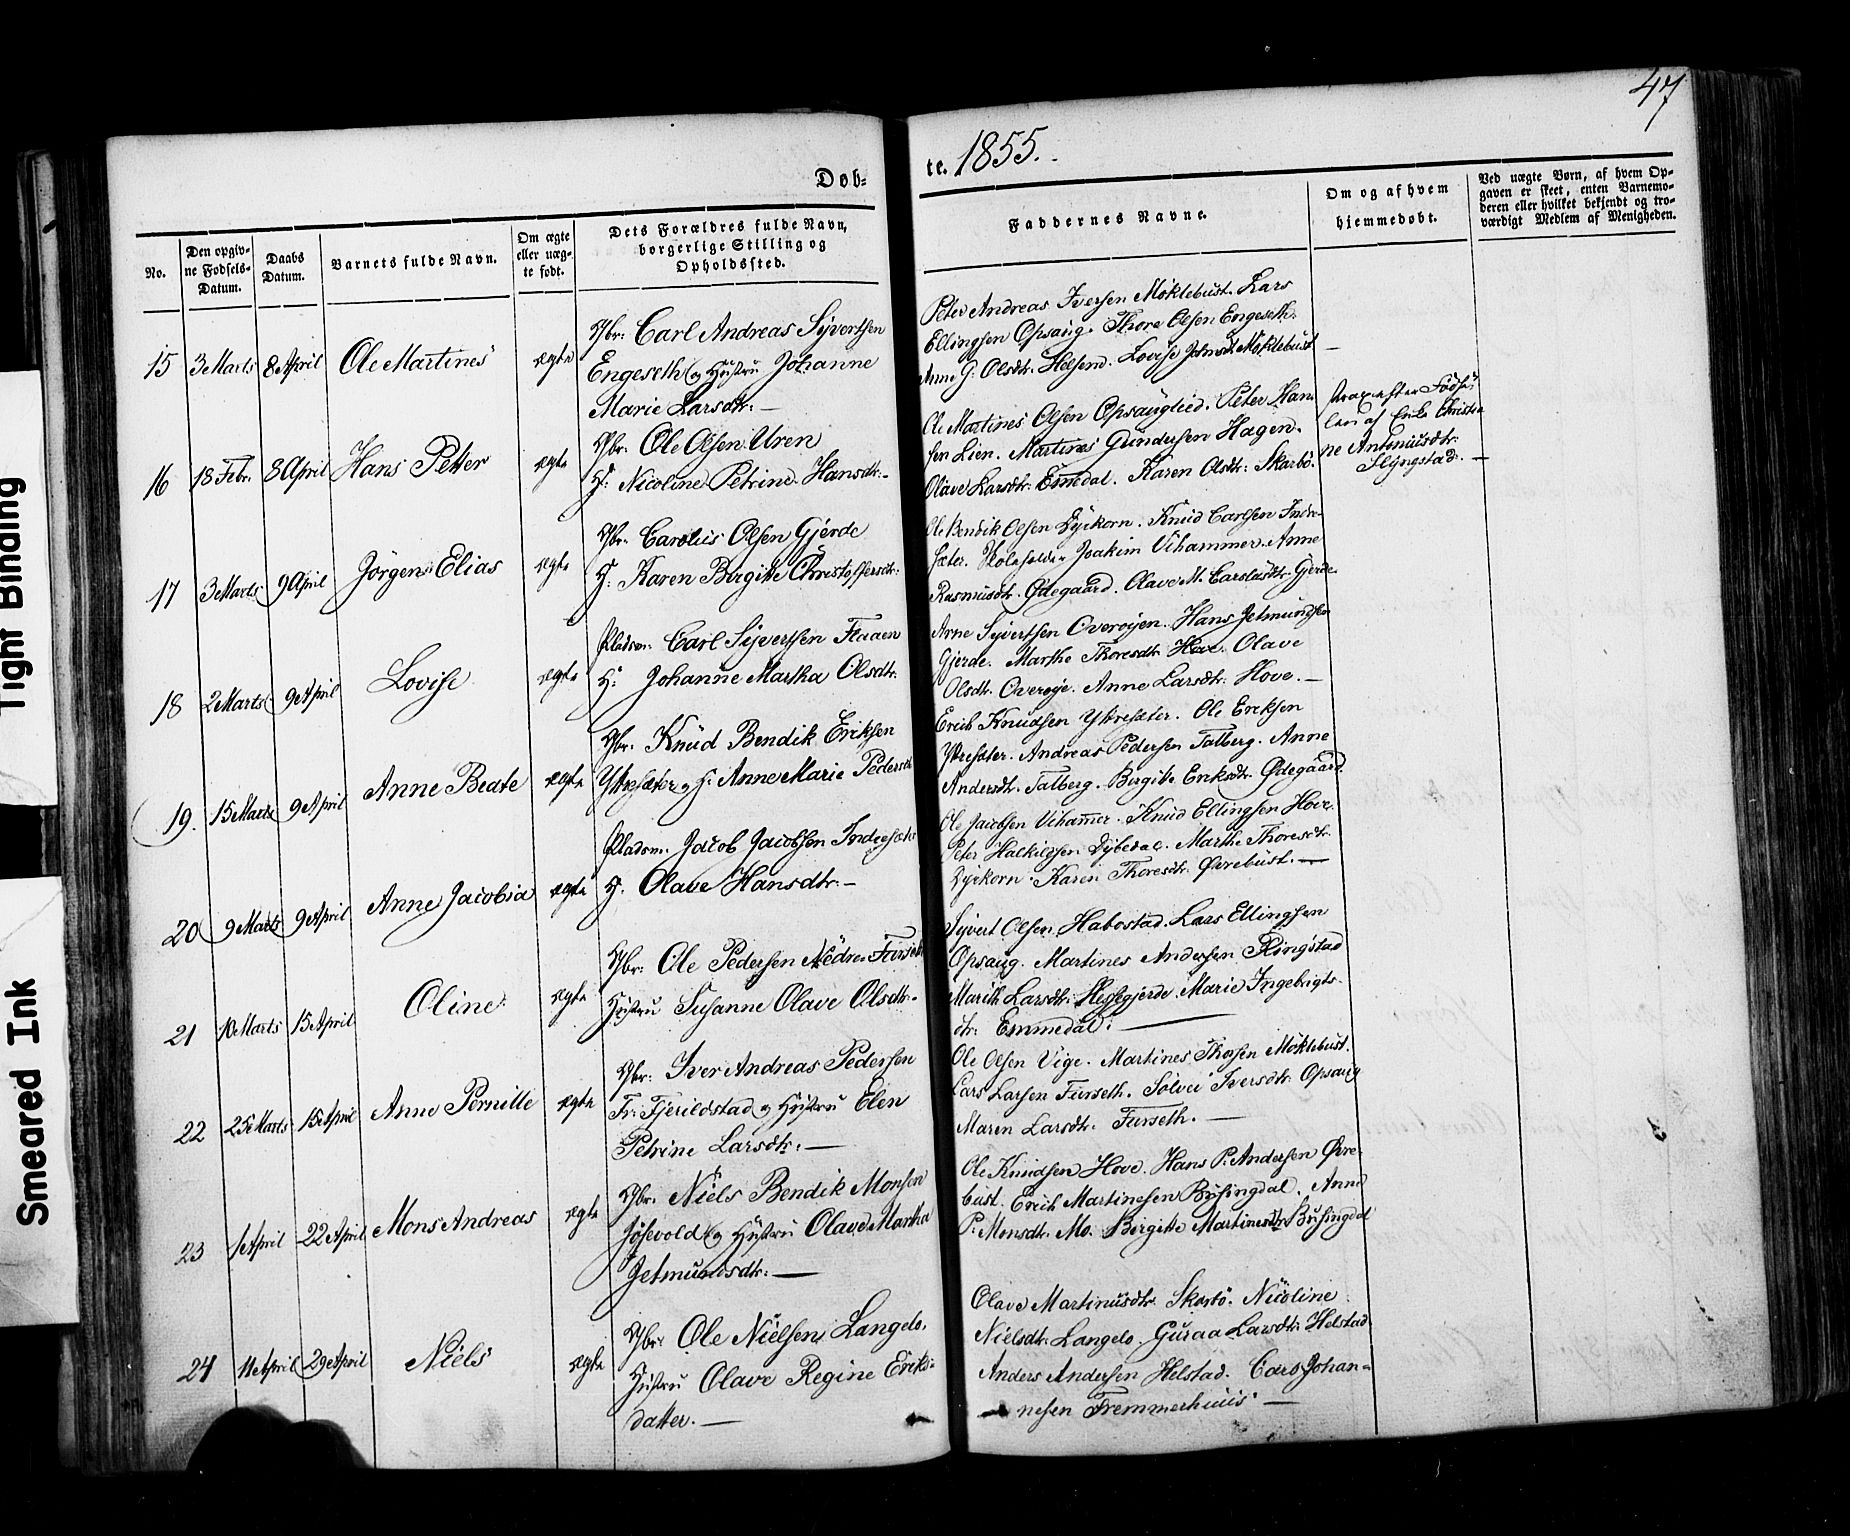 47
Døb-
te. 1855.
No.
Den opgiv-
ne Fødsels-
Datum.
Daabs
Datum.
Barnets fulde Navn.
Om ægte
eller uæg-
te født.
Dets Forældres fulde Navn,
borgerlige Stilling og
Opholdssted.
Faddernes Navne.
Om og af hvem
hjemmedøbt.
Ved uægte Børn, af hvem Op-
gaven er skeet, enten Barnemo-
deren eller hvilket bekjendt og tro-
værdigt Medlem af Menigheden.
15 3 Marts 8 April Ole Martines ægte
Gbr: Carl Andreas Syvertsen
Engeseth og Hustru Johanne
Marie Larsdtr. —
Peter Andreas Iversen Moklebust. Lars
Ellingsen Opsaug. Thore Olsen Engeseth.
Anne G. Olsdtr. Helsem. Lovise Johnsd. Moklebust —
16 18 Febr. 8 April Hans Petter ægte
Gbr. Ole Olsen Uren
H: Nicoline Petrine Hansdtr. -
Ole Martines Olsen Opsauglied. Peter Han-
sen Lien. Martines Gundersen Hagen.
Olave Larsdtr. Emedal. Karen Olsdtr: Skarbö.
strax efter Födse
len af Enke Christia
ne Antoniusdtr.
Slyngstad. —
17 3 Marts 9 April Jörgen Elias ægte
Gbr. Carolus Olsen Gjerde
H: Karen Birgitte Christoffersdtr:
Ole Bendik Olsen Dyrkorn. Knud Carlsen Indre-
sæter. Skoleholder Joakim Vihammer. Anne
Rasmusdtr. Ødegaard. Olave M. Carolusdtr. Gjerde.
18 2 Marts 9 April Lovise ægte
Pladsm. Carl Syvertsen Flaaen
H: Johanne Martha Olsdtr.
Arne Syvertsen Overøyen. Hans Jetmundsen
Gjerde. Marthe Thoresdtr. Hove. Olave
Olsdtr. Overøye. Anne Larsdtr: Hove. —
19. 15 Marts 9 April Anne Beate ægte
Gbr. Knud Bendik Eriksen
Yttresæter og H: Anne Marie Pedersdtr
Erich Knudsen Yttresæter. Ole Ereksen
Yttresæter. Andreas Pedersen Talberg. Anne
Andersdtr. Talberg. Birgitte Eriksdtr. Ødegaard.
20 9 Marts 9 April Anne Jacobia ægte
Pladsm. Jacob Jacobsen Indresæter
H. Olave Hansdtr. —
Ole Jacobsen Vihamer. Knud Ellingsen Hove.
Peter Halkildsen Dybedal. Marthe Thoresdtr.
Dyrkorn. Karen Thoresdtr. Øvrebust. —
21 10 Marts 15 April Oline ægte
Gbr: Ole Pedersen Nedre Furseth
Hustru Susanne Olave Olsdtr.
Syvert Olsen Habostad. Lars Ellingsen
Opsaug. Martines Andersen Slingstad
Marith Larsdtr. Heggegjerde. Marie Ingebrigts-
dtr. Emmedal. —
22 25 Marts 15 April Anne Pernille ægte
Gbr: Iver Andreas Pedersen
Fr: Fjerildstad og Hustru Elen
Petrine Larsdtr. —
Ole Olsen Vige. Martines Thorsen Moklebust.
Lars Larsen Furseth. Solvei Iversdtr. Opsaug
Maren Larsdtr. Furseth. —
23 1 April 22 April Mons Andreas ægte
Gbr. Niels Bendik Monsen
Jösevold og Hustru Olave Martha
Jetmundsdtr. —
Ole Knudsen Hove. Hans P. Andersen Øvre-
bust. Erich Martinesen Busingdal. Anne
P. Monsdtr. Mo. Birgitte Martinesdtr Busingdal
24 11 April 29 April Niels ægte
Gbr: Ole Nielsen Langelo.
Hustru Olave Regine Eriks-
datter. —
Olave Martinusdtr. Skorbö. Nicoline
Nielsdtr. Langelo. Guraa Larsdtr: Helstad
Anders Andersen Helstad. Carl Johan-
nesen Fremmerhuus —
Tight Binding
Smeared Ink